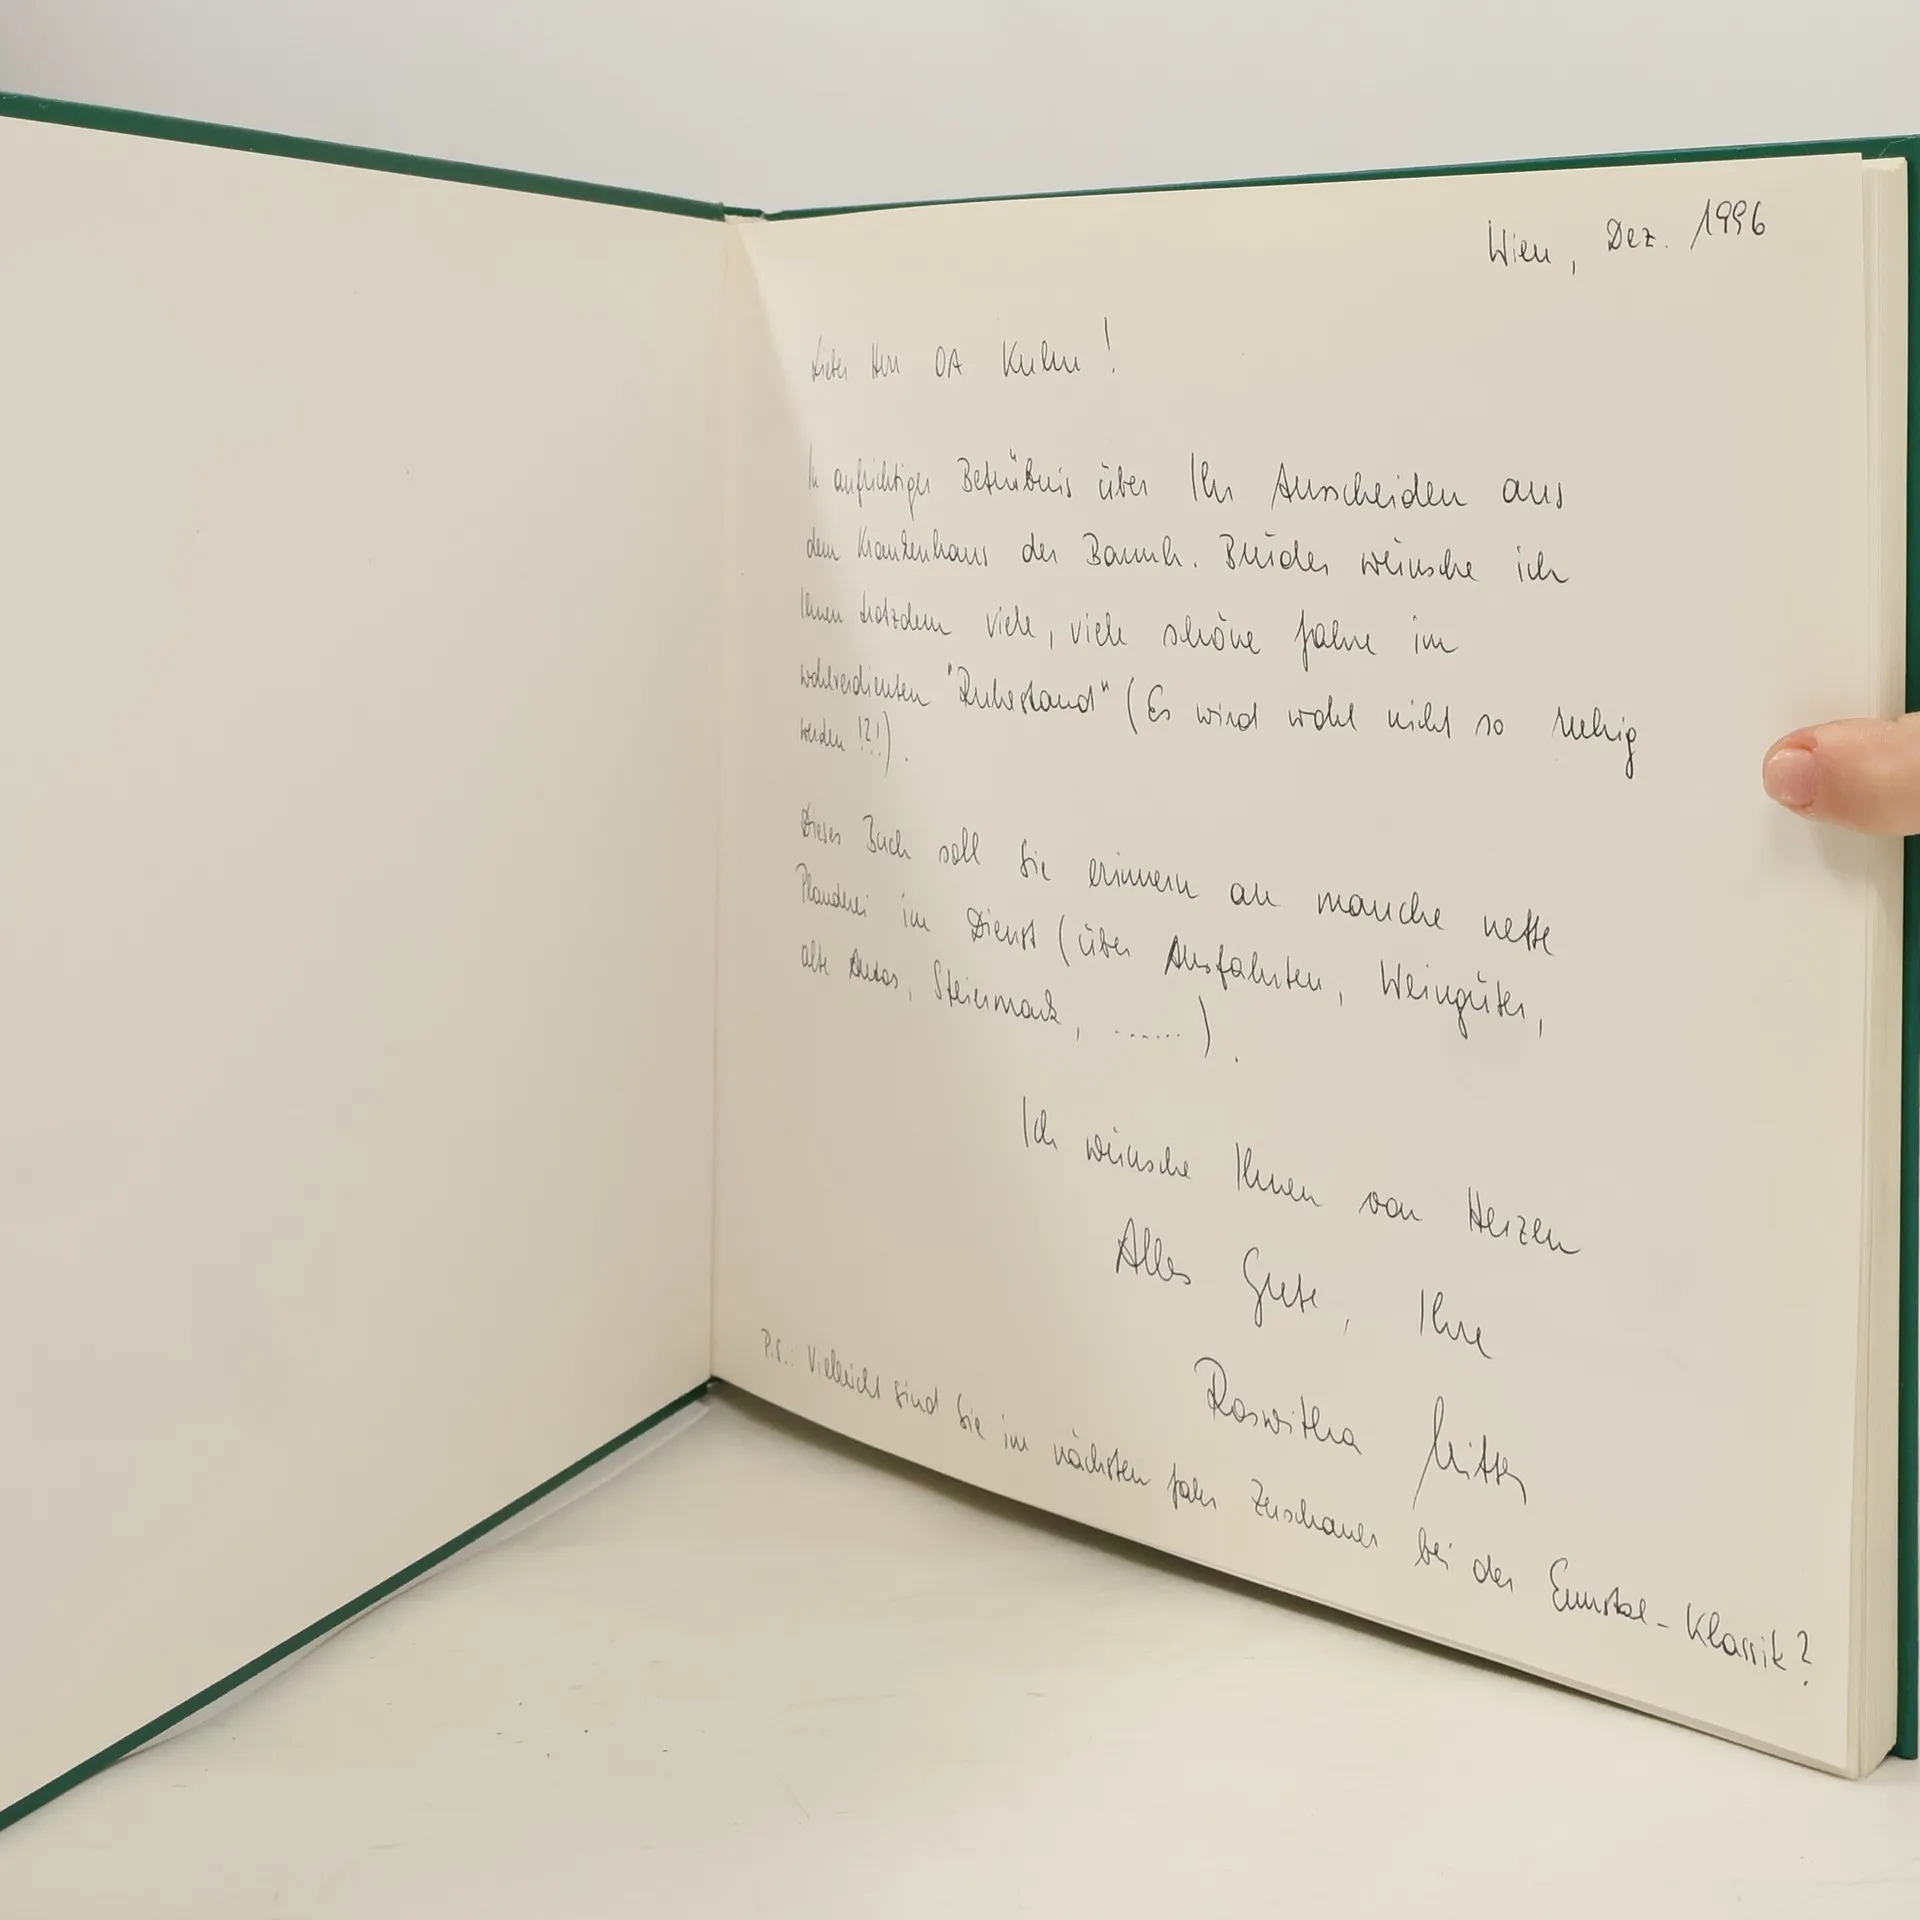 Wien, Dez. 1996
Lieber Herr OA Kuhn!
In aufrichtiger Betrübnis über Ihr Ausscheiden aus
dem Krankenhaus der Barmh. Brüder wünsche ich
Ihnen trotzdem viele, viele schöne Jahre im
wohlverdienten "Ruhestand" (Es wird wohl nicht so ruhig
werden !?!).
Dieses Buch soll Sie erinnern an manche nette
Plauderei im Dienst (über Ausfahrten, Weingüter,
alte Autos, Steiermark, ......).
Ich wünsche Ihnen von Herzen
Alles Gute, Ihre
Roswitha
P.S.: Vielleicht sind Sie im nächsten Jahr Zuschauer bei der Ennstal-Klassik?